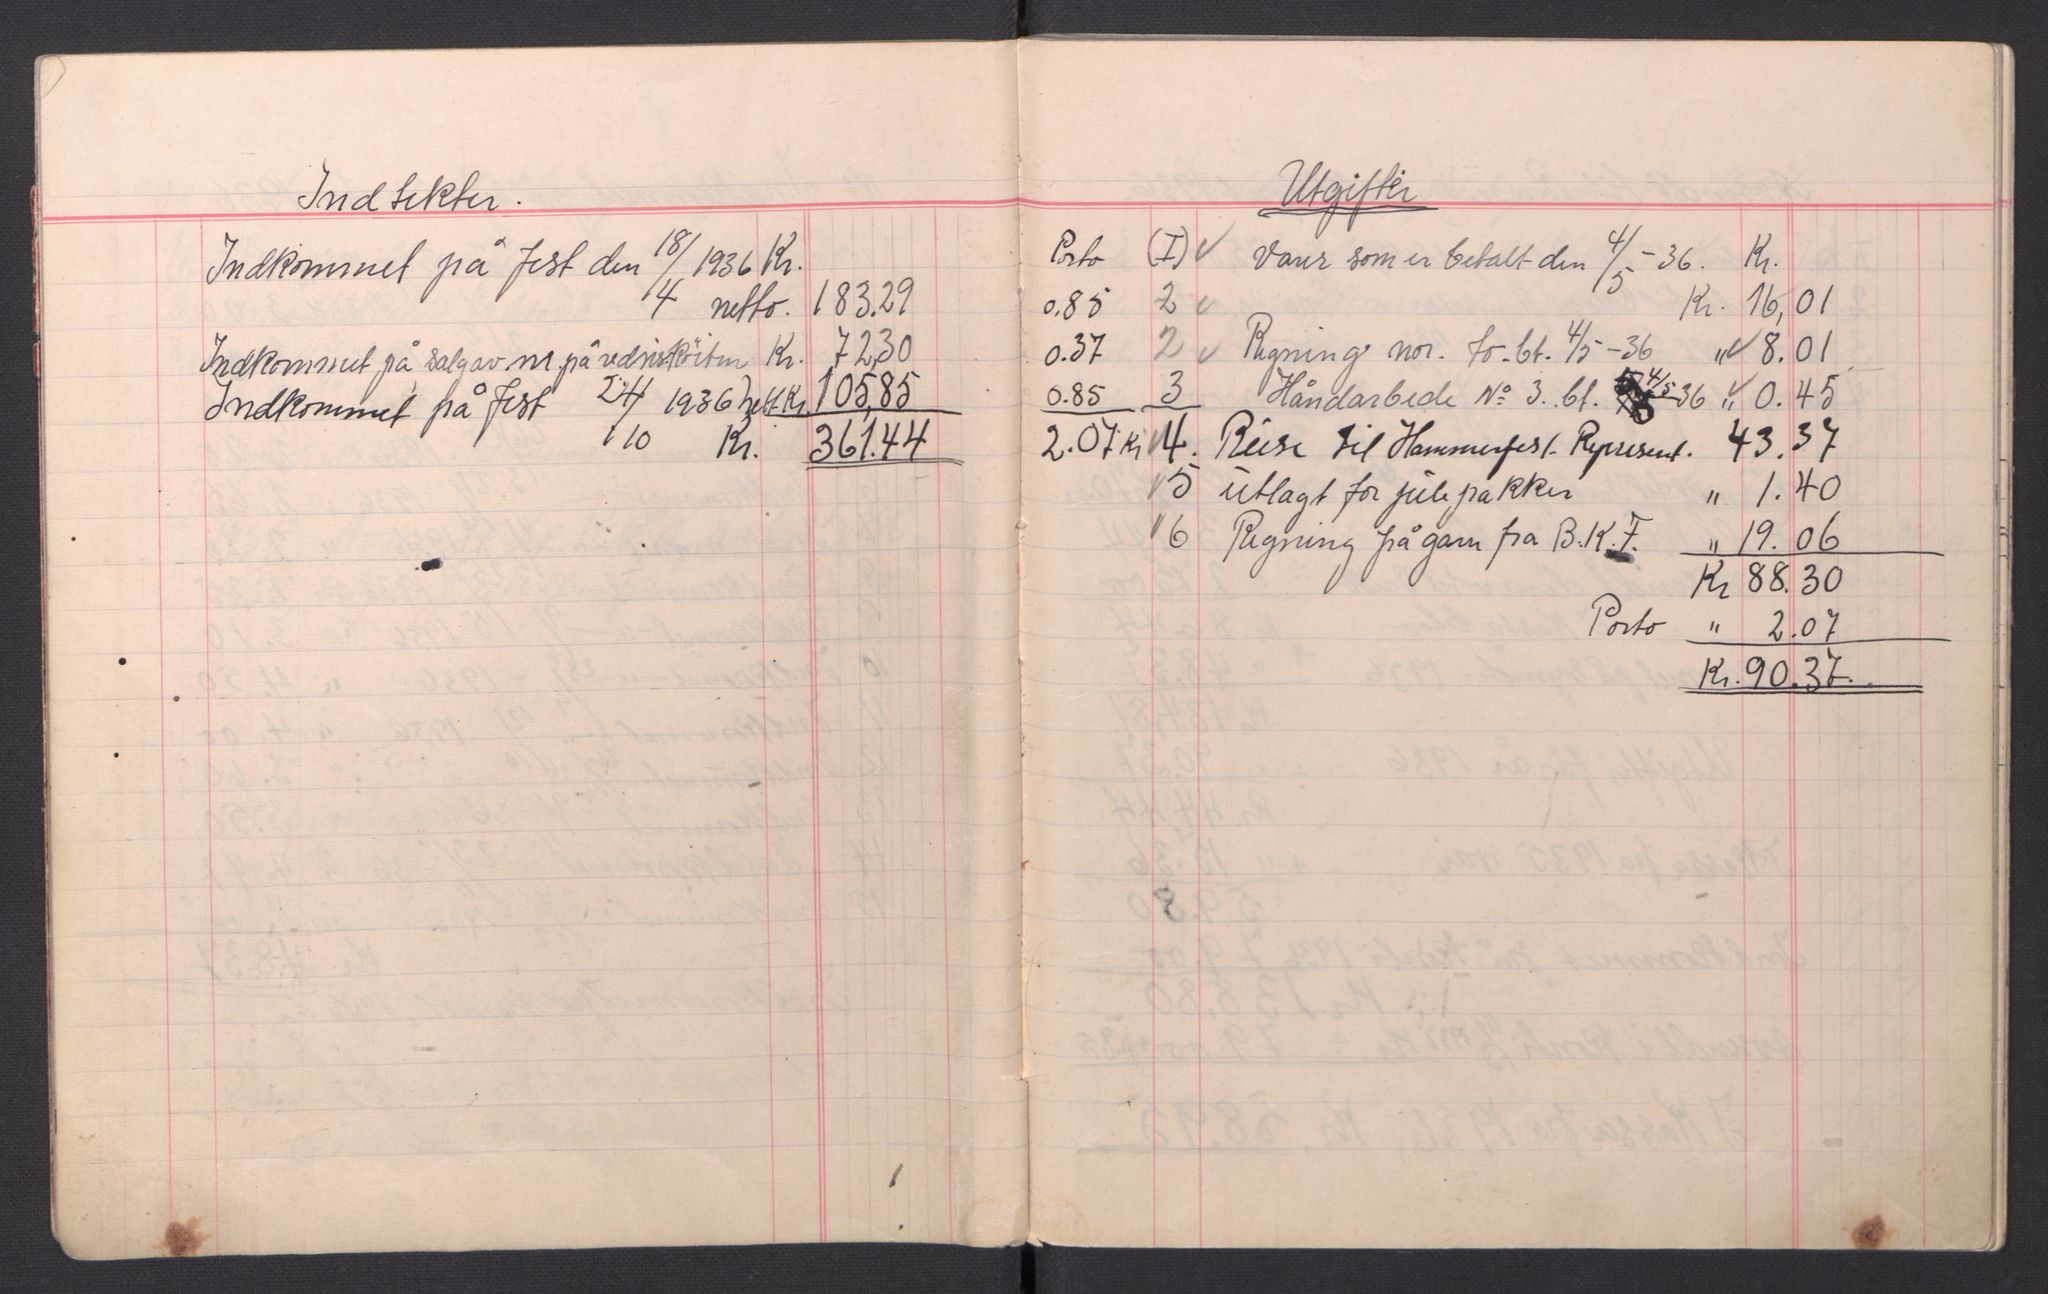 Indtekter.
Indkommet på fest den 18/4 1936 Kr.
netto. 183.29
Indkommet på salg av m. på Kr. 72,30
Indkommet på fest 24/10 1936 nett. Kr. 105,85
Kr. 361.44
Utgifter
Porto (I) ✓ Varer som er betalt den 4/5 - 36. Kr.
0.85 2 ✓ Kr. 16,01
0.37 2 ✓ Regning nor. fo. bt. 4/5 - 36 " ✓ 8.01
0.85 3 Håndarbede No 3. bt. 4/5 - 36 ✓ " 0.45
2.07 Kr 4. Reise til Hammerfest. Represent. 43.37
5 utlagt for jule pakker " 1.40
6 Regning på garn fra B.K.F. " 19.06
Kr 88.30
Porto " 2.07
Kr. 90.37.